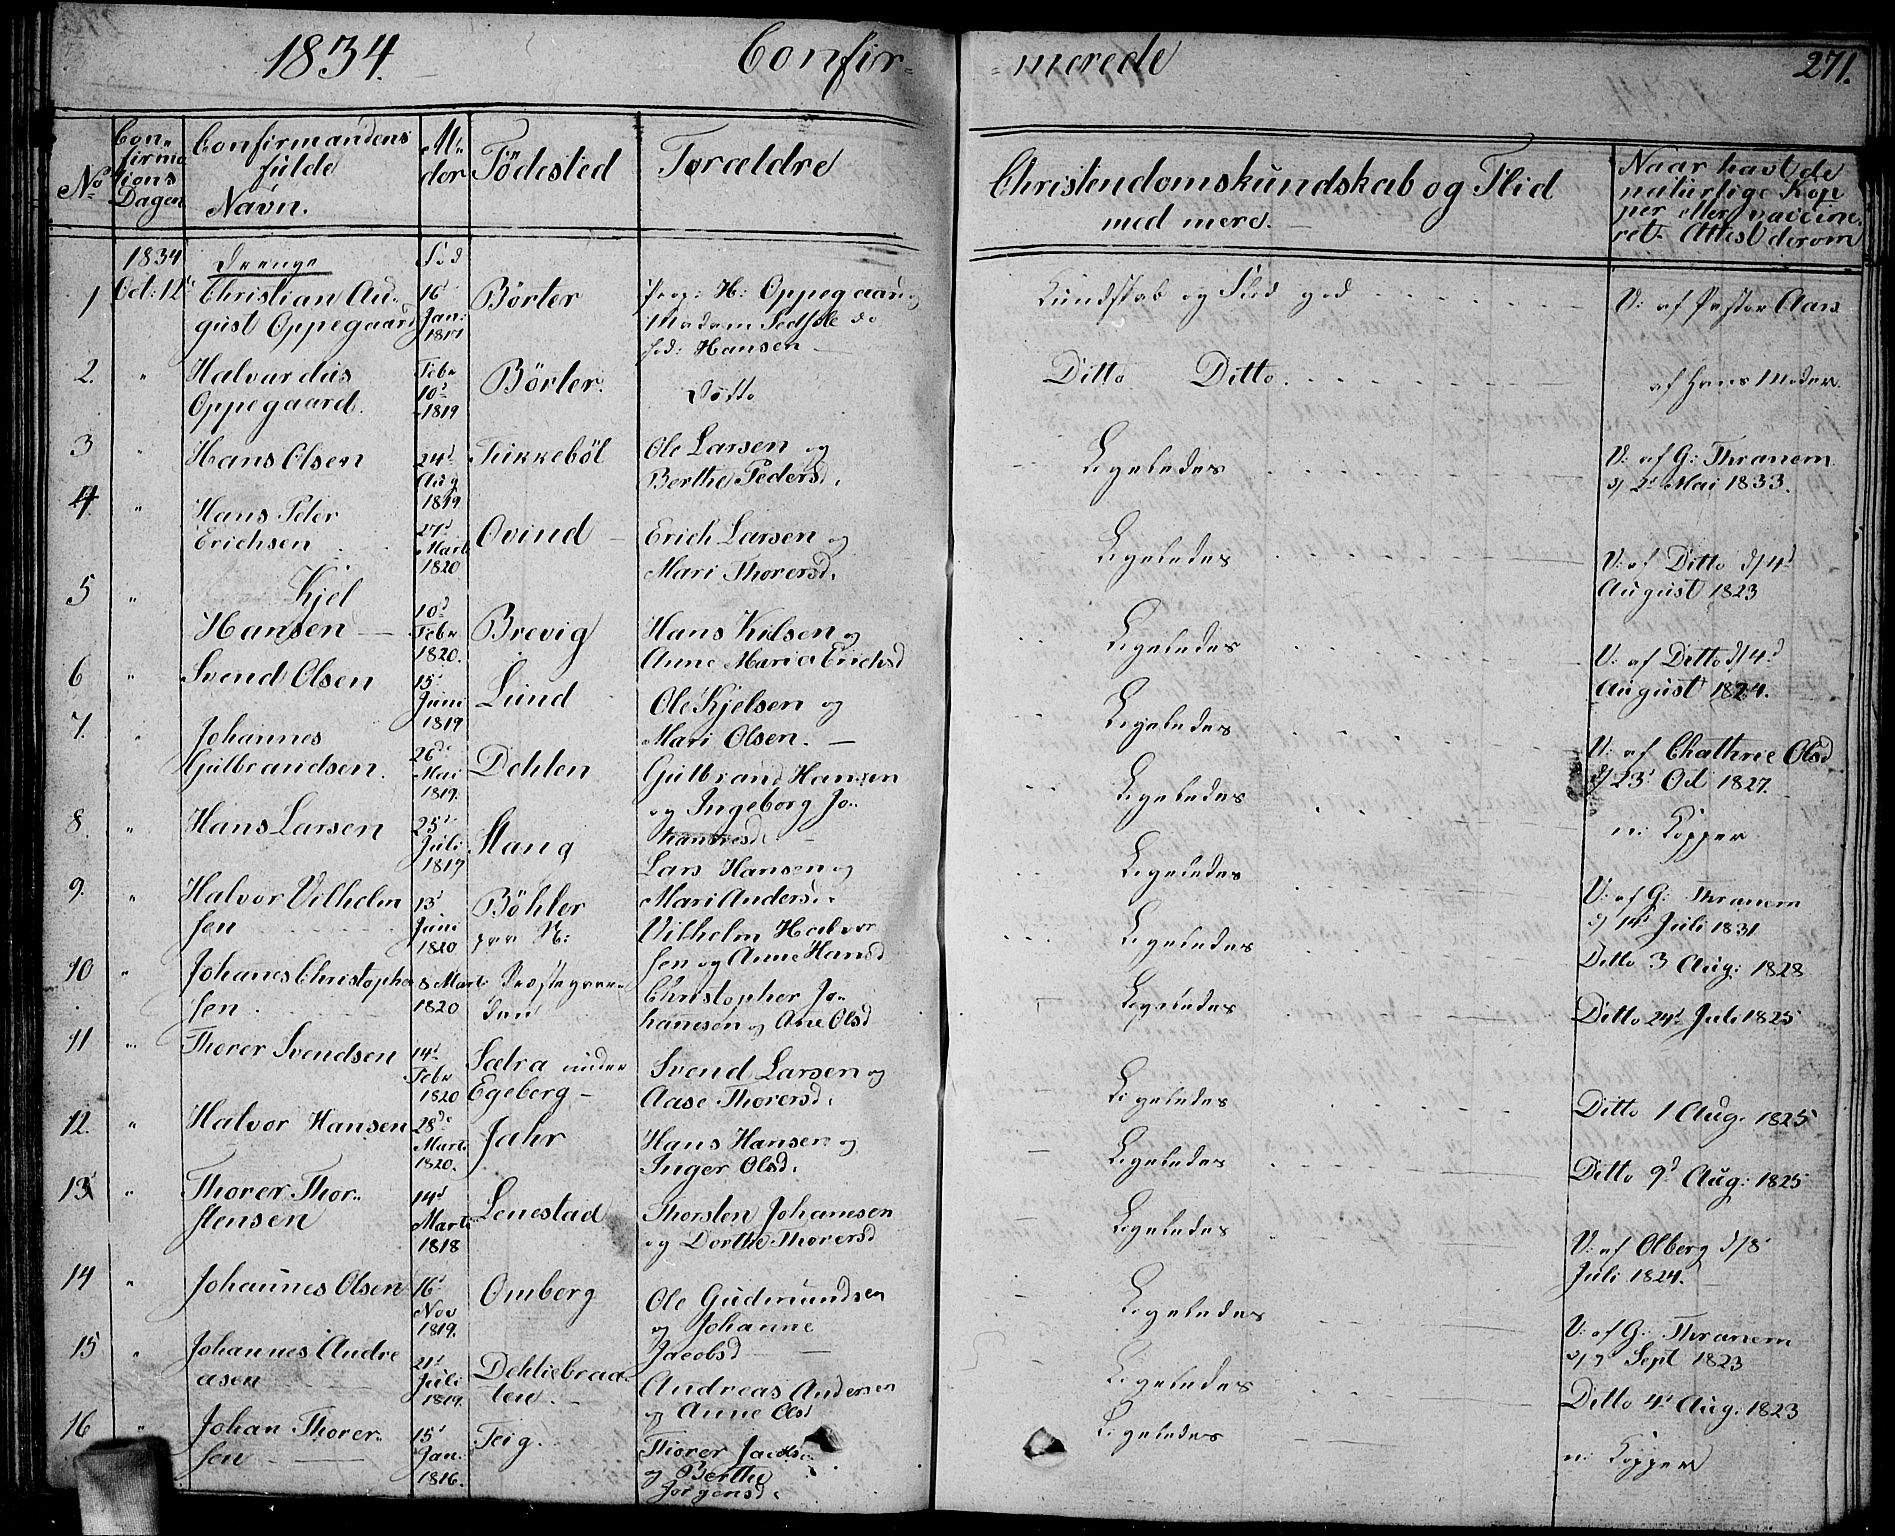 1834. Confir-
-merede 271.
No
Con-
firma
tions
Dagen
Confirmandens
fulde
Navn.
Al-
der
Födested
Forældre
Christendomskundskab og Flid
med mere.
Naar havt de
naturlige Kop
per eller vaccine
ret. Attest derom
1834 Drenge Föd
1 Oct: 12 Christian Au-
gust Oppegaard
16d
Jan:
Börter
H: Oppegaard og
Madam
fød: Hansen
Kundskab og Flid god
V: af Pastor Aars
2. " Halvardus
Oppegaard.
Febr
10d
1819
Börter.
Ditto
Ditto Ditto.
af Hans Moder
3 " Hans Olsen
24d
Aug
1819
Kikkeböl
Ole Larsen og
Berthe Pedersd.
Ligeledes
V: af G: Thranem
d/ 2d Mai 1833.
4. " Hans Peter
Erichsen
27d
Mart
1820
Ovind
Erich Larsen og
Mari Thorersd.
Ligeledes
V: af Ditto d/4d
August 1823
5 " Kjel
Hansen
10d
Febr
1820.
Brevig
Hans Kilsen og
Anne Maria Erichsd
Ligeledes
V: af Ditto d/4d
August 1824.
6 " Svend Olsen
15d
Juni
1819
Lund
Ole Kjelsen og
Mari Olsen.
Ligeledes
V: af Chathrie Olsd
d/23d Oct 1827.
7. " Johannes
Gulbrandsen.
26de
Mai
1819.
Dehlen
Gulbrand Hansen
og Ingeborg Jo-
hannesd.
Ligeledes
n: Kopper
8. " Hans Larsen
25d
Juli
1819
Haug
Lars Hansen og
Mari Andersd.
Ligeledes
V: af G: Thranem
d/ 14d Juli 1831
9. " Halvor Vilhelm
sen
13d
Juni
1820
Böhler
paa N:
Vilhelm Halvor
sen og Anne Hansd
Ligeledes
Ditto 3 Aug: 1828
10 " Johanes Christopher
sen
8 Mart
1820
Christopher Jo-
hanesen og Ane Olsd
Ligeledes
Ditto 24d Juli 1825
11 " Thorer Svendsen
14d
Febr
1820
Sætra under
Egeberg
Svend Larsen og
Aase Thorersd.
Ligeledes
Ditto 1 Aug. 1825
12. " Halvor Hansen
28de
Mart
1820.
Jahr
Hans Hansen og
Inger Olsd.
Ligeledes
Ditto 9d Aug: 1825
13 " Thorer Thor-
stensen
14d
Mart
1818
Lenestad
Thorsten Johanesen
og Dorthe Thorersd
Ligeledes
V: af Olberg d/8d
Juli 1824.
14 " Johannes Olsen
16d
Nov
1819.
Omberg
Ole Gudmundsen
og Johanne
Jacobsd
Ligeledes
V: af G: Thranem
d/7 Sept 1823
15 " Johannes Andre
asen
21d
Juli
1819.
Dehliebraa-
ten.
Andreas Andersen
og Anne Olsd
Ligeledes
Ditto 4d Aug: 1823
16 " Johan Thorer-
sen
15d
Jan.
1816.
Teig.
Thorer Jacobs.
og Berthe
Jörgensd.
Ligeledes
n: Kopper